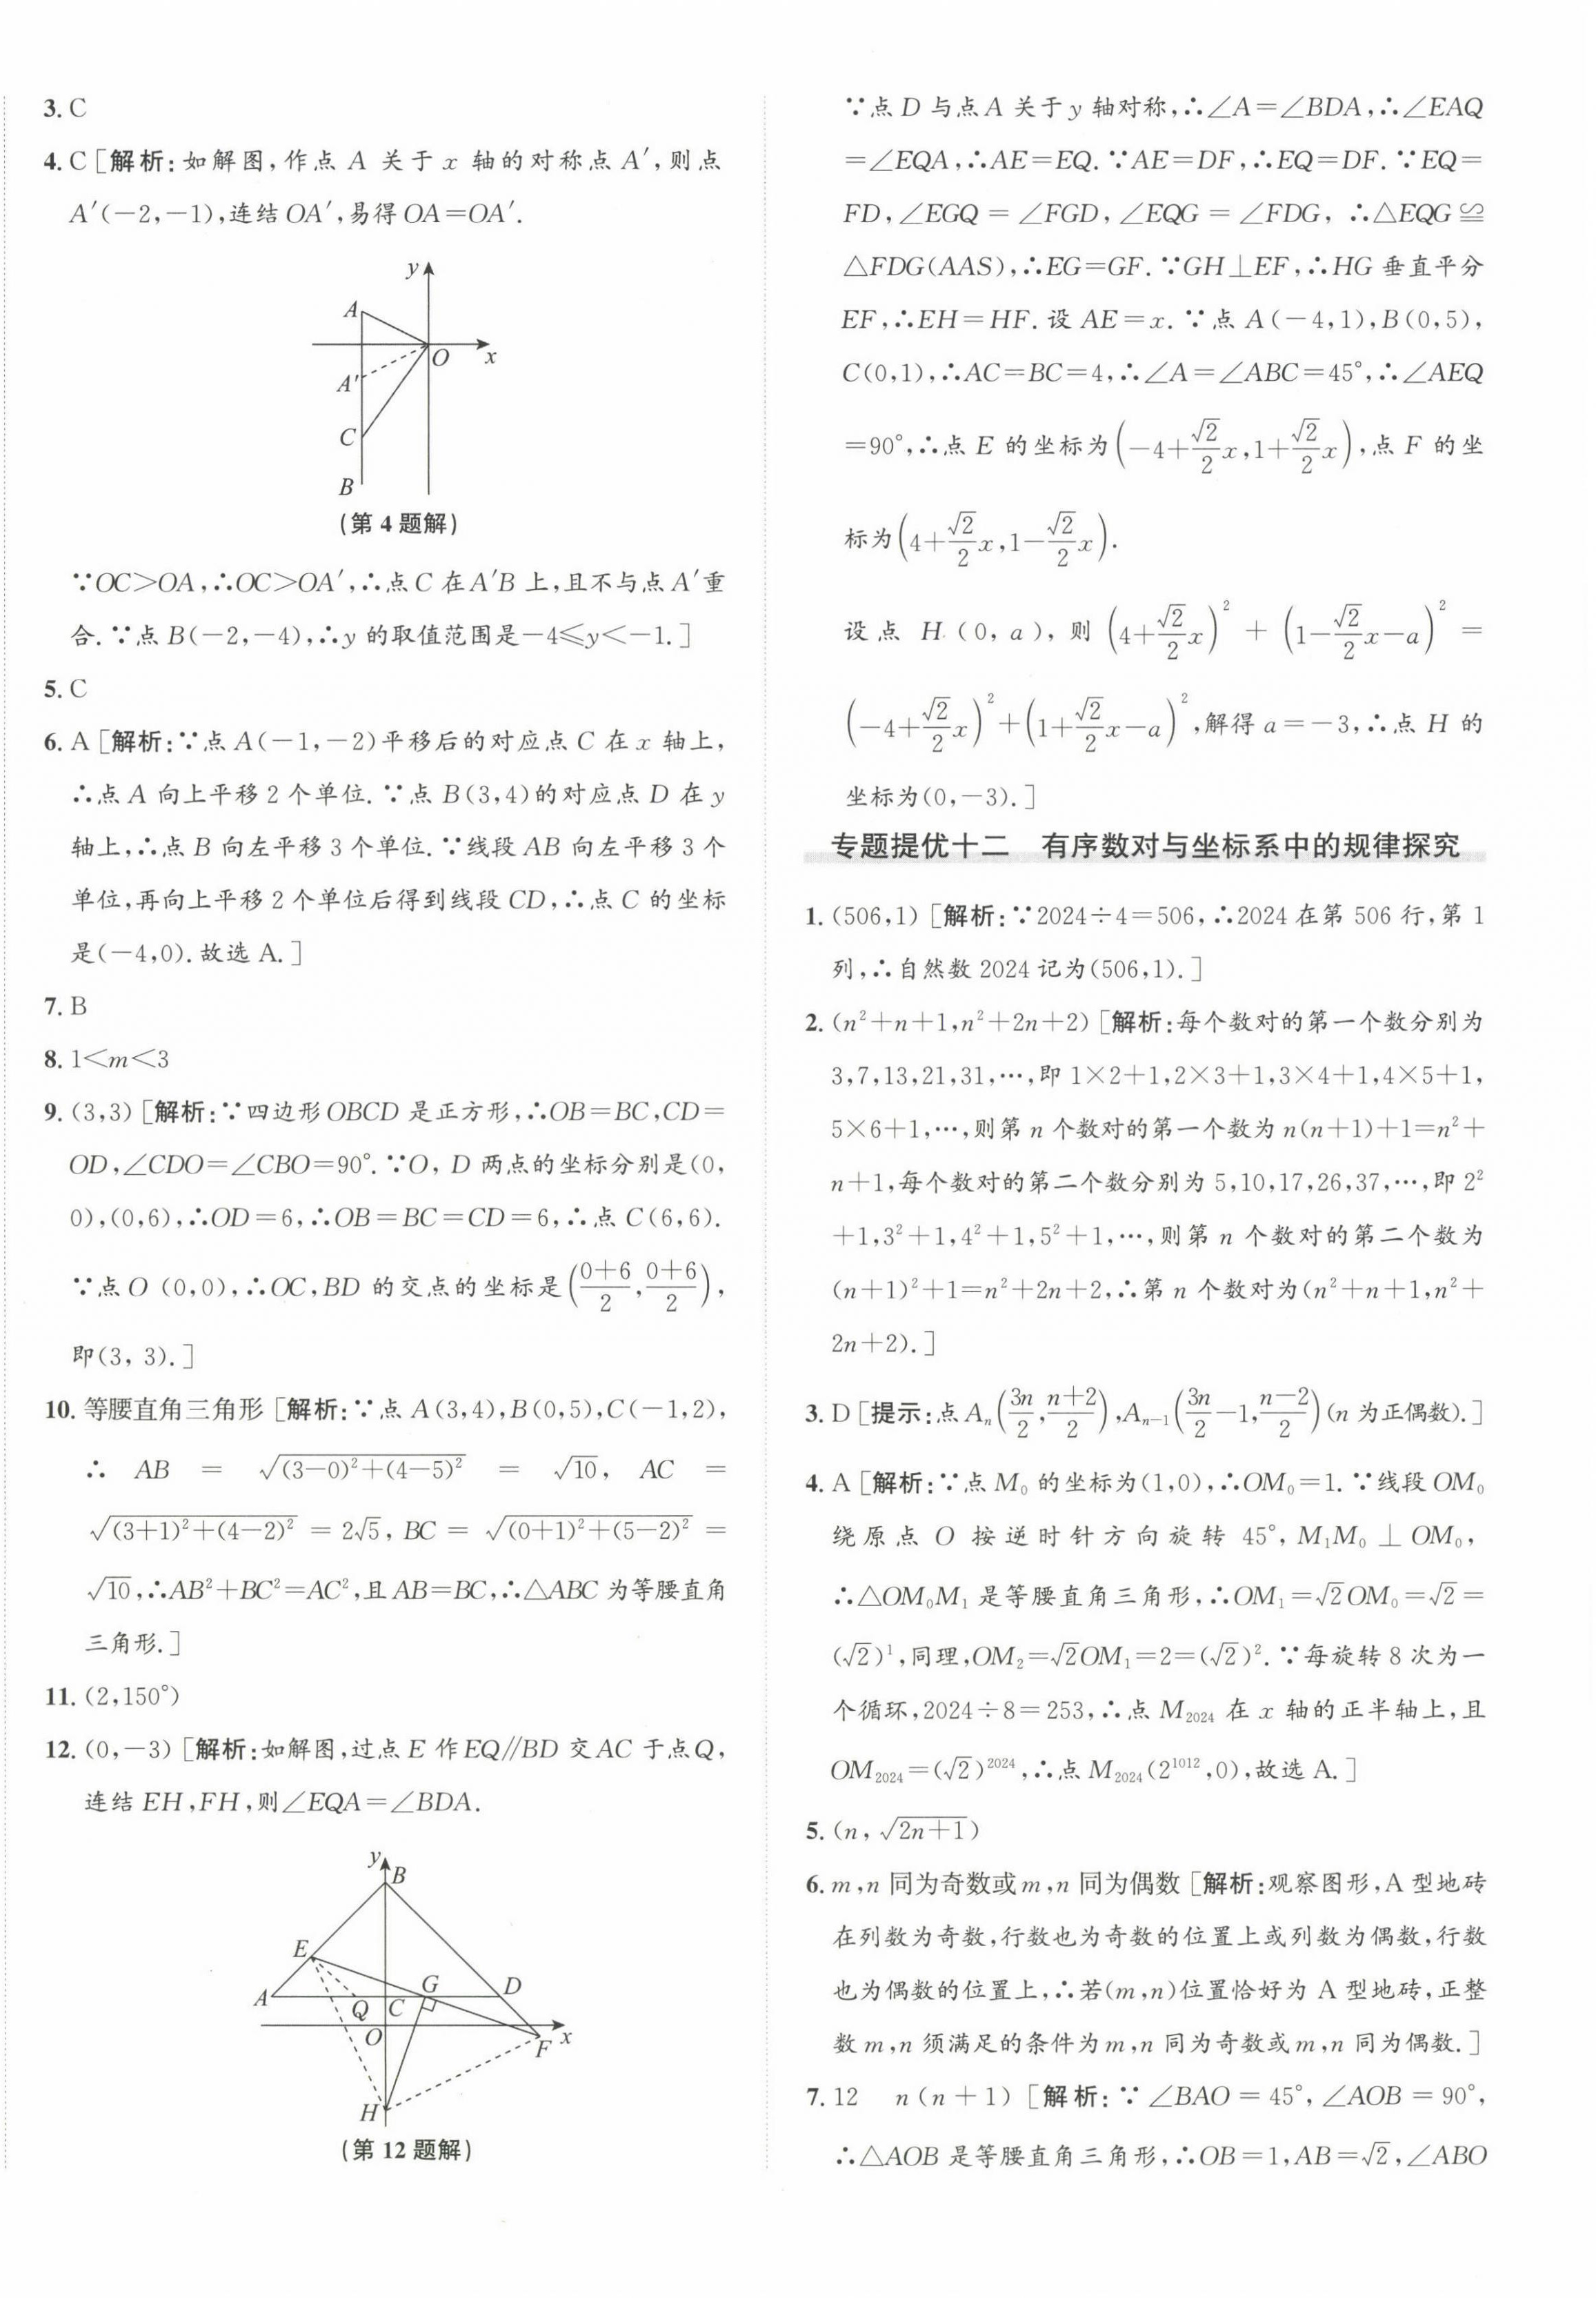 3. C
4. C [解析:如解图,作点 A 关于 x 轴的对称点 A′,则点
A′(−2,−1),连结 OA′,易得 OA=OA′.
y
A
O
x
A′
C
B
(第 4 题解)
∵OC>OA,∴OC>OA′,∴点 C 在 A′B 上,且不与点 A′重
合.∵点 B(−2,−4),∴y 的取值范围是−4≤y<−1.]
5. C
6. A [解析:∵点 A(−1,−2)平移后的对应点 C 在 x 轴上,
∴点 A 向上平移 2 个单位.∵点 B(3,4)的对应点 D 在 y
轴上,∴点 B 向左平移 3 个单位.∵线段 AB 向左平移 3 个
单位,再向上平移 2 个单位后得到线段 CD,∴点 C 的坐标
是(−4,0).故选 A.]
7. B
8. 1<m<3
9. (3,3) [解析:∵四边形 OBCD 是正方形,∴OB=BC,CD=
OD,∠CDO=∠CBO=90°.∵O, D 两点的坐标分别是(0,
0),(0,6),∴OD=6,∴OB=BC=CD=6,∴点 C(6,6).
∵点 O (0,0),∴OC,BD 的交点的坐标是((0+6)/2,(0+6)/2),
即(3, 3).]
10. 等腰直角三角形 [解析:∵点 A(3,4),B(0,5),C(−1,2),
∴ AB = √((3−0)²+(4−5)²) = √10, AC =
√((3+1)²+(4−2)²) = 2√5, BC = √((0+1)²+(5−2)²) =
√10,∴AB²+BC²=AC²,且 AB=BC,∴△ABC 为等腰直角
三角形.]
11. (2,150°)
12. (0,−3) [解析:如解图,过点 E 作 EQ∥BD 交 AC 于点 Q,
连结 EH,FH,则∠EQA=∠BDA.
y
B
E
G
D
A
Q
C
O
x
F
H
(第 12 题解)
∵点 D 与点 A 关于 y 轴对称,∴∠A=∠BDA,∴∠EAQ
=∠EQA,∴AE=EQ.∵AE=DF,∴EQ=DF.∵EQ=
FD,∠EGQ = ∠FGD,∠EQG = ∠FDG, ∴△EQG≌
△FDG(AAS),∴EG=GF.∵GH⊥EF,∴HG 垂直平分
EF,∴EH=HF.设 AE=x.∵点 A(−4,1),B(0,5),
C(0,1),∴AC=BC=4,∴∠A=∠ABC=45°,∴∠AEQ
=90°,∴点 E 的坐标为(−4+(√2/2)x,1+(√2/2)x),点 F 的坐
标为(4+(√2/2)x,1−(√2/2)x).
设点 H (0, a), 则 (4+(√2/2)x)² + (1−(√2/2)x−a)² =
(−4+(√2/2)x)²+(1+(√2/2)x−a)²,解得 a=−3,∴点 H 的
坐标为(0,−3).]
专题提优十二 有序数对与坐标系中的规律探究
1. (506,1) [解析:∵2024÷4=506,∴2024 在第 506 行,第 1
列,∴自然数 2024 记为(506,1).]
2. (n²+n+1,n²+2n+2) [解析:每个数对的第一个数分别为
3,7,13,21,31,…,即 1×2+1,2×3+1,3×4+1,4×5+1,
5×6+1,…,则第 n 个数对的第一个数为 n(n+1)+1=n²+
n+1,每个数对的第二个数分别为 5,10,17,26,37,…,即 2²
+1,3²+1,4²+1,5²+1,…,则第 n 个数对的第二个数为
(n+1)²+1=n²+2n+2,∴第 n 个数对为(n²+n+1,n²+
2n+2).]
3. D [提示:点 Aₙ(3n/2,(n+2)/2),Aₙ₋₁(3n/2−1,(n−2)/2)(n 为正偶数).]
4. A [解析:∵点 M₀ 的坐标为(1,0),∴OM₀=1.∵线段 OM₀
绕原点 O 按逆时针方向旋转 45°, M₁M₀ ⊥ OM₀,
∴△OM₀M₁ 是等腰直角三角形,∴OM₁=√2OM₀=√2=
(√2)¹,同理,OM₂=√2OM₁=2=(√2)².∵每旋转 8 次为一
个循环,2024÷8=253,∴点 M₂₀₂₄ 在 x 轴的正半轴上,且
OM₂₀₂₄=(√2)²⁰²⁴,∴点 M₂₀₂₄(2¹⁰¹²,0),故选 A.]
5. (n, √(2n+1))
6. m,n 同为奇数或 m,n 同为偶数 [解析:观察图形,A 型地砖
在列数为奇数,行数也为奇数的位置上或列数为偶数,行数
也为偶数的位置上,∴若(m,n)位置恰好为 A 型地砖,正整
数 m,n 须满足的条件为 m,n 同为奇数或 m,n 同为偶数.]
7. 12 n(n+1) [解析:∵∠BAO=45°,∠AOB=90°,
∴△AOB 是等腰直角三角形,∴OB=1,AB=√2,∠ABO